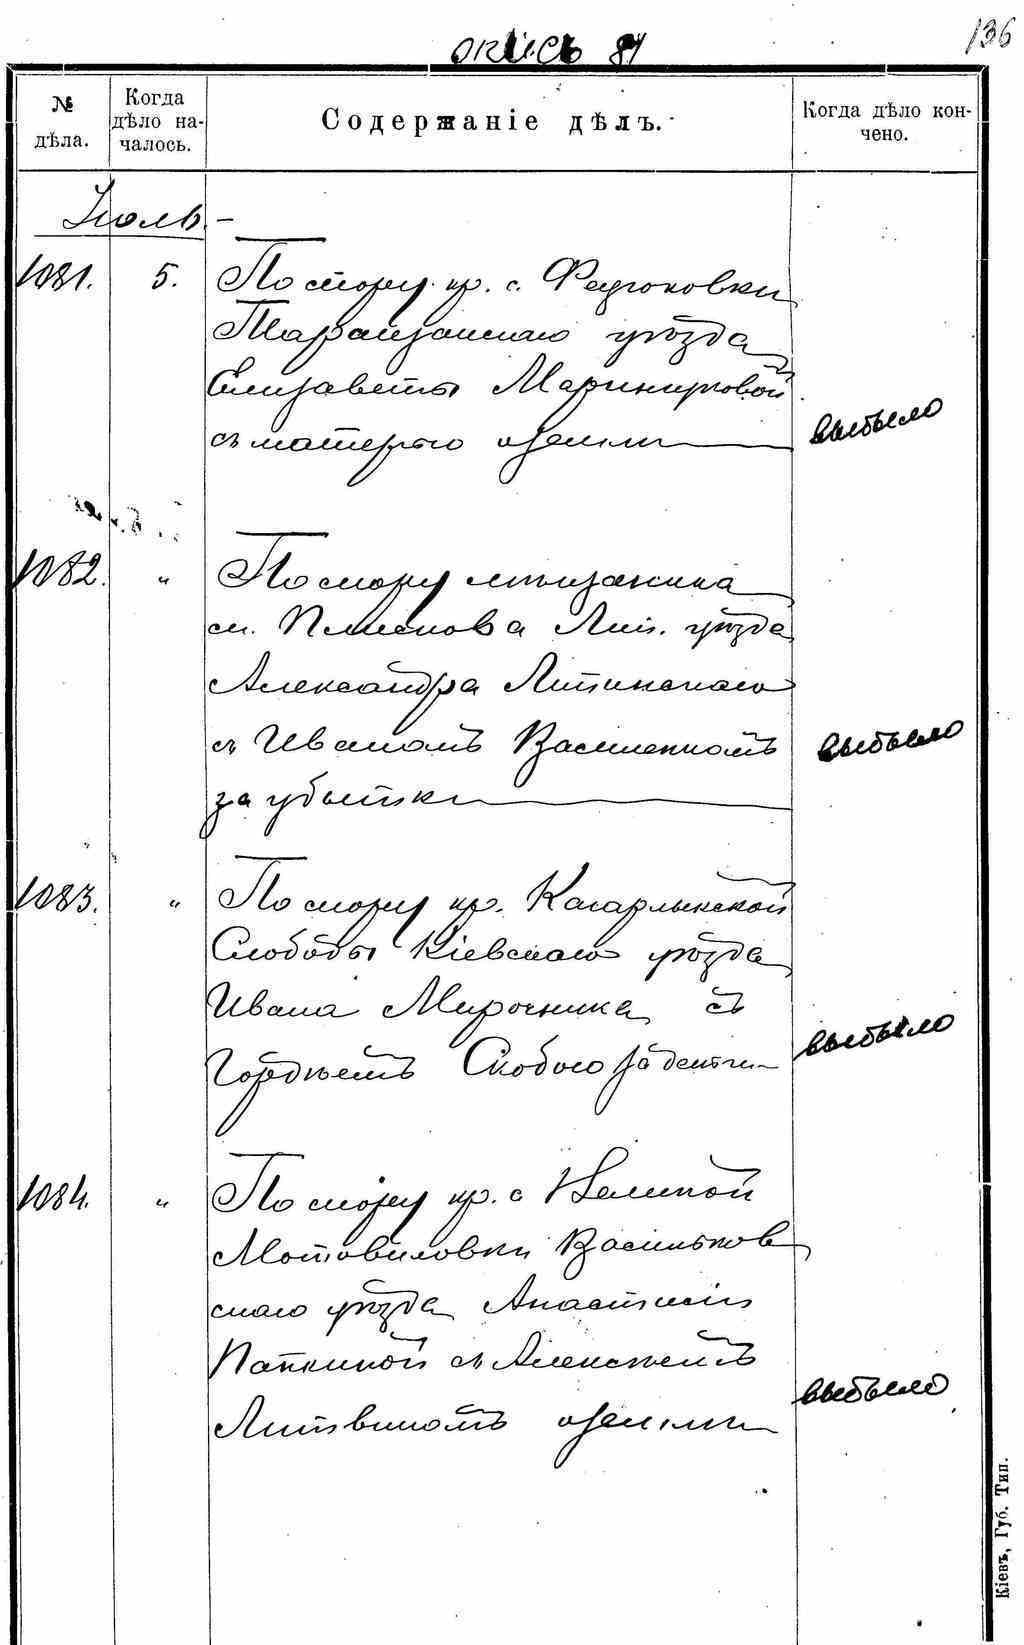 136
опись 81
№ дѣла.
Когда дѣло на-
чалось.
Содержаніе дѣлъ.
Когда дѣло кон-
чено.
Іюль.
1081. 5. По спору кр. с. Федюковки
Таращанскаго уѣзда
Елизаветы
съ матерью о землѣ
выбыло
1082. " По спору мѣщанина
м. Плискова Лип. уѣзда
Александра Литинскаго
съ Иваномъ Василенкомъ
за убытки
выбыло
1083. " По спору кр. Кагарлыкской
Слободы Кіевскаго уѣзда
Ивана Мирошника съ
Гордѣемъ
выбыло
1084. " По спору кр. с Великой
Мотовиловки Васильков
скаго уѣзда Анастасіи
съ Алексѣемъ
Литвиномъ о землѣ
выбыло
Кіевъ, Губ. Тип.